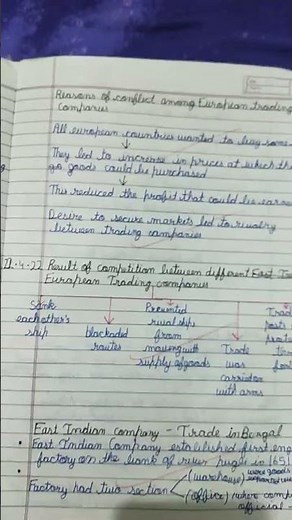 Reasons of conflict among European trading
Companies
All european countries wanted to buy same
They led to increase in prices at which th
go goods could be purchased
This reduced the profit that could be earne
Desire to secure markets led to rivalry
between trading companies
21-4-22 Result of competition between different East In
European Trading companies
Sank
each other's
ship
blockaded
routes
Prevented
rival ships
from
moving with
supply of goods
Trade
was
carried on
with arms
Trad
posts
prote
thr
fort
East Indian company - Trade in Bengal
• East Indian Company established first eng
factory on the bank of river Hugli in 1651
• Factory had two section
(warehouse) were goods
(office) where comp
official